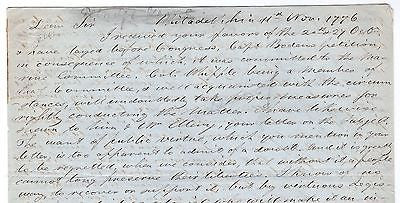 Dear Sir Philadelphia 11th Nov. 1776
I received your favors of the 22d & 29 Octr.
& have layed before Congress, Capt. Bodans petition,
in consequence of which, it was committed to the Ma-
rine Committee. Col. Whipple being a member of
that Committee, & well acquainted with the circum-
stances, will undoubtedly take proper measures for
rightly conducting the matter. I have likewise
shown to him & Mr Ellery, your letter on the subject.
The want of public virtue, which you mention in your
letter, is too apparent to admit of a doubt. And it is greatly
to be regretted, when we consider that without it a people
cannot long preserve their liberties. I know of no
way to recover or support it, but by virtuous Legis-
will make it an in